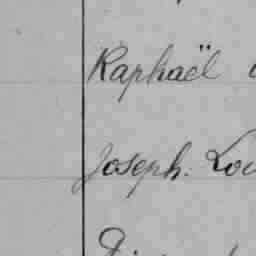 Raphaël
Joseph. Lou